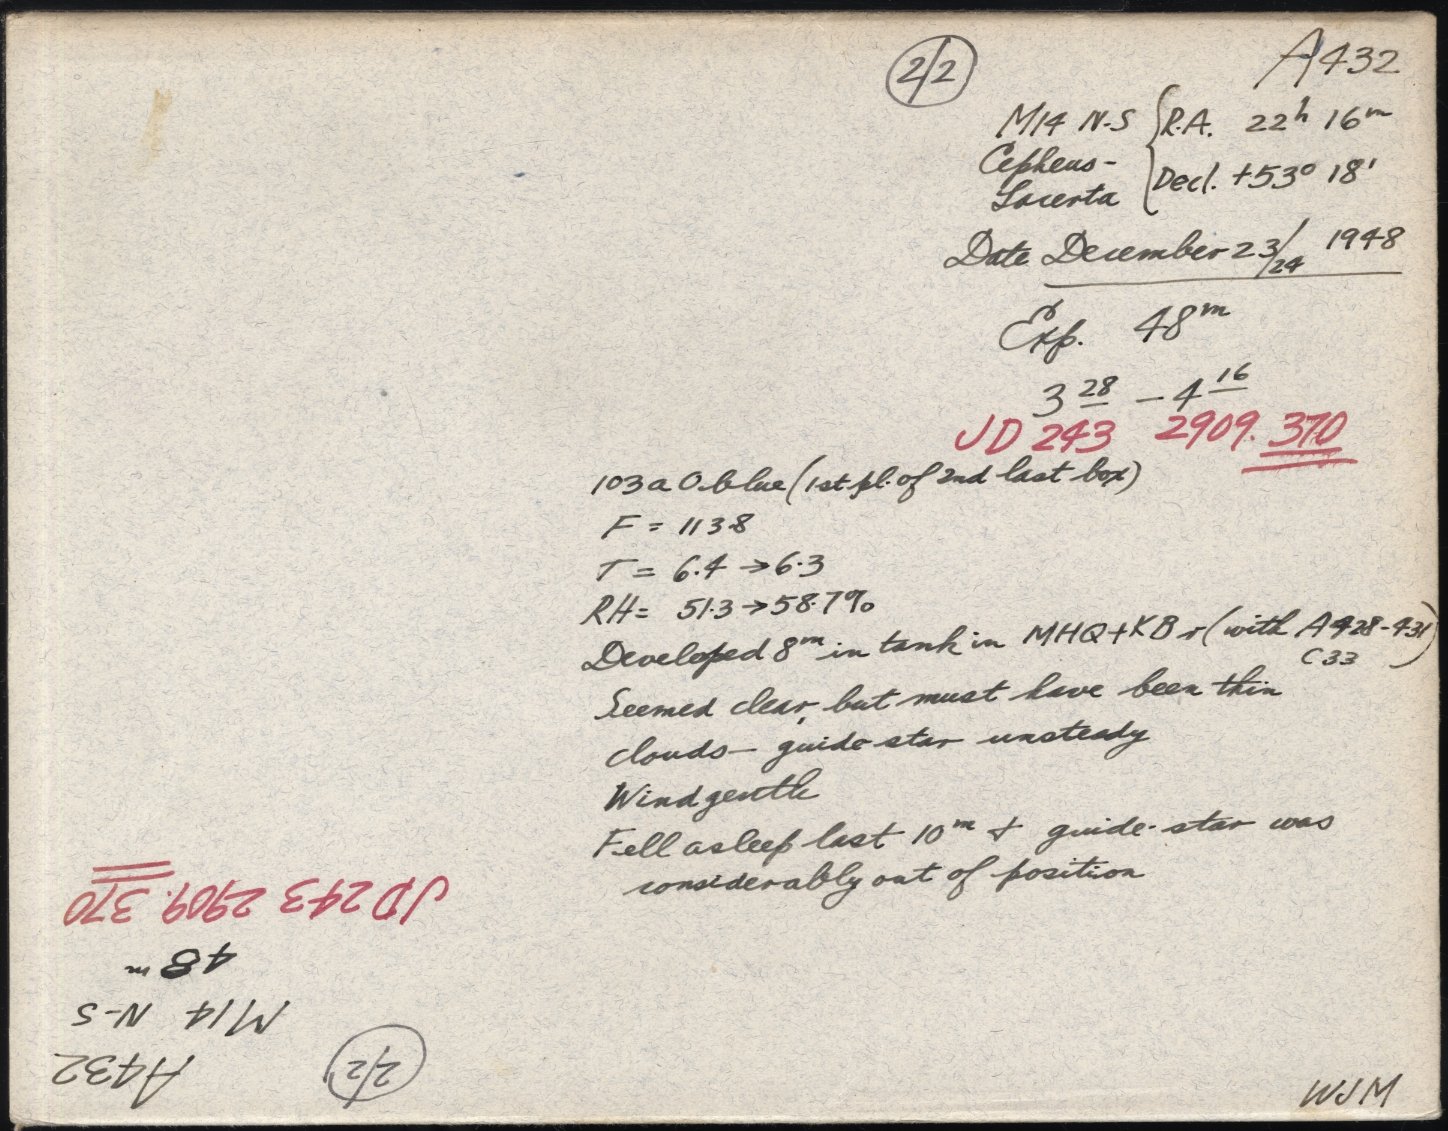 2/2
A432
M14 N-S { R.A. 22h 16m
Cepheus-
Lacerta
Decl. +53° 18'
Date December 23/24 1948
Exp. 48m
3 28 – 4 16
JD 243 2909.370
103a O blue (1st pl. of 2nd last box)
F = 1138
T = 6.4 → 6.3
RH = 51.3 → 58.7%
Developed 8m in tank in MHQ + KBr (with A428-431)
C33
Seemed clear, but must have been thin
clouds – guide star unsteady
Wind gentle
Fell asleep last 10m & guide-star was
considerably out of position
WJM
A432
2/2
M14 N-S
48m
JD 243 2909.370